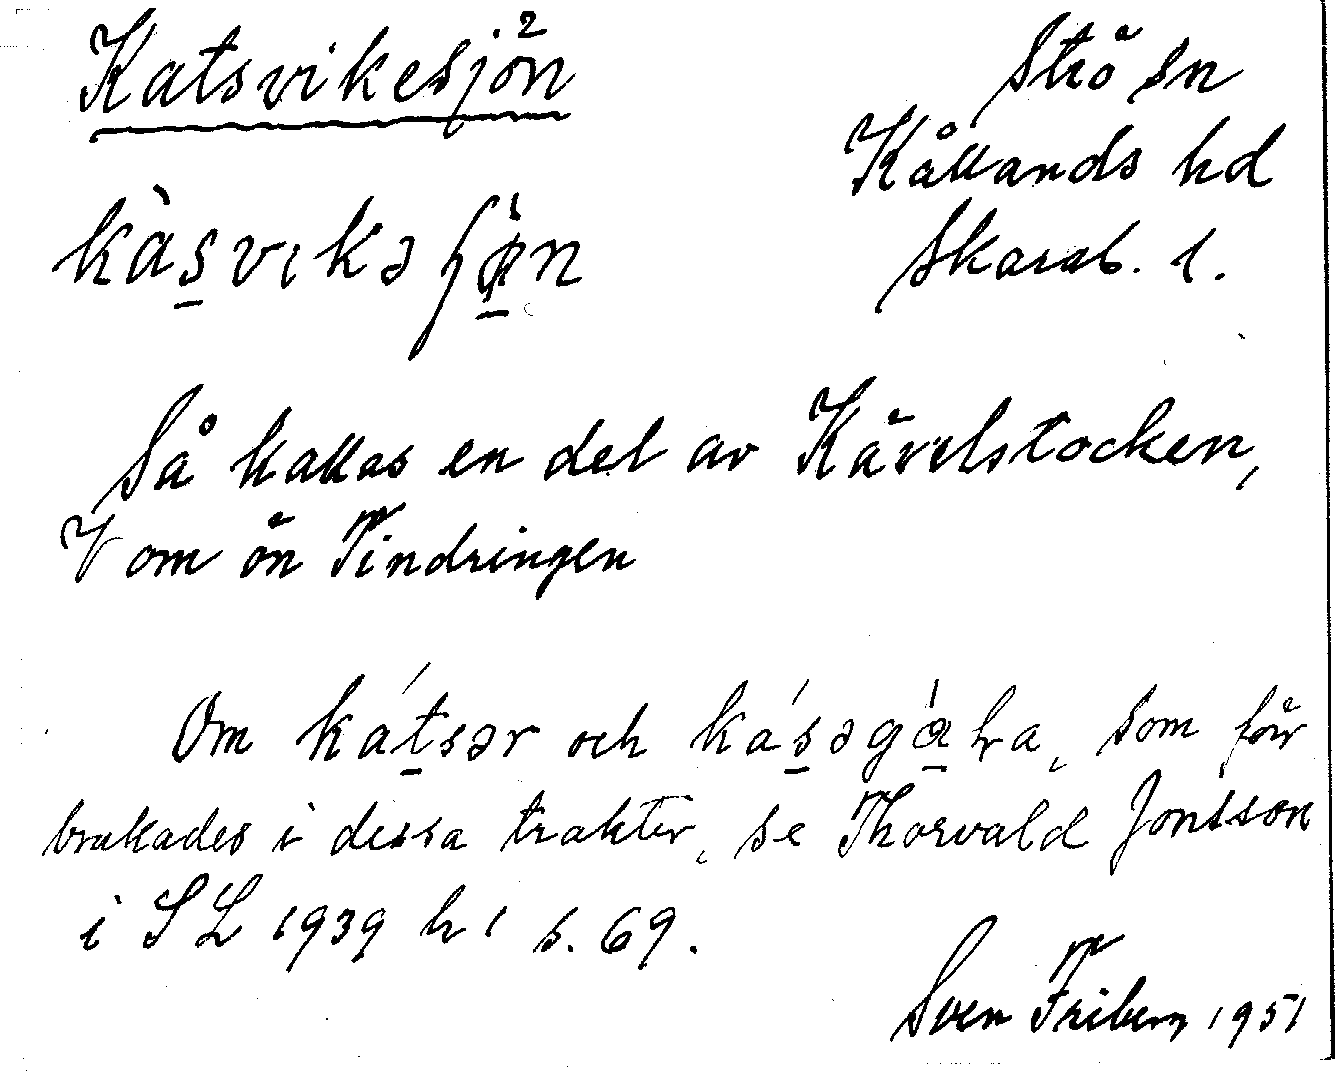 Katsvikesjön 2
Strö sn
Kållands hd
Skarab. l.
kàs̱vikə ʃø̱̀n
Så kallas en del av Kävelstocken,
V om ön Tindringen
Om káṯsər och kás̱əgà̱ɽa, som för
brukades i dessa trakter, se Thorvald Jonsson
i SL 1939 h 1 s. 69.
Sven Friberg 1951